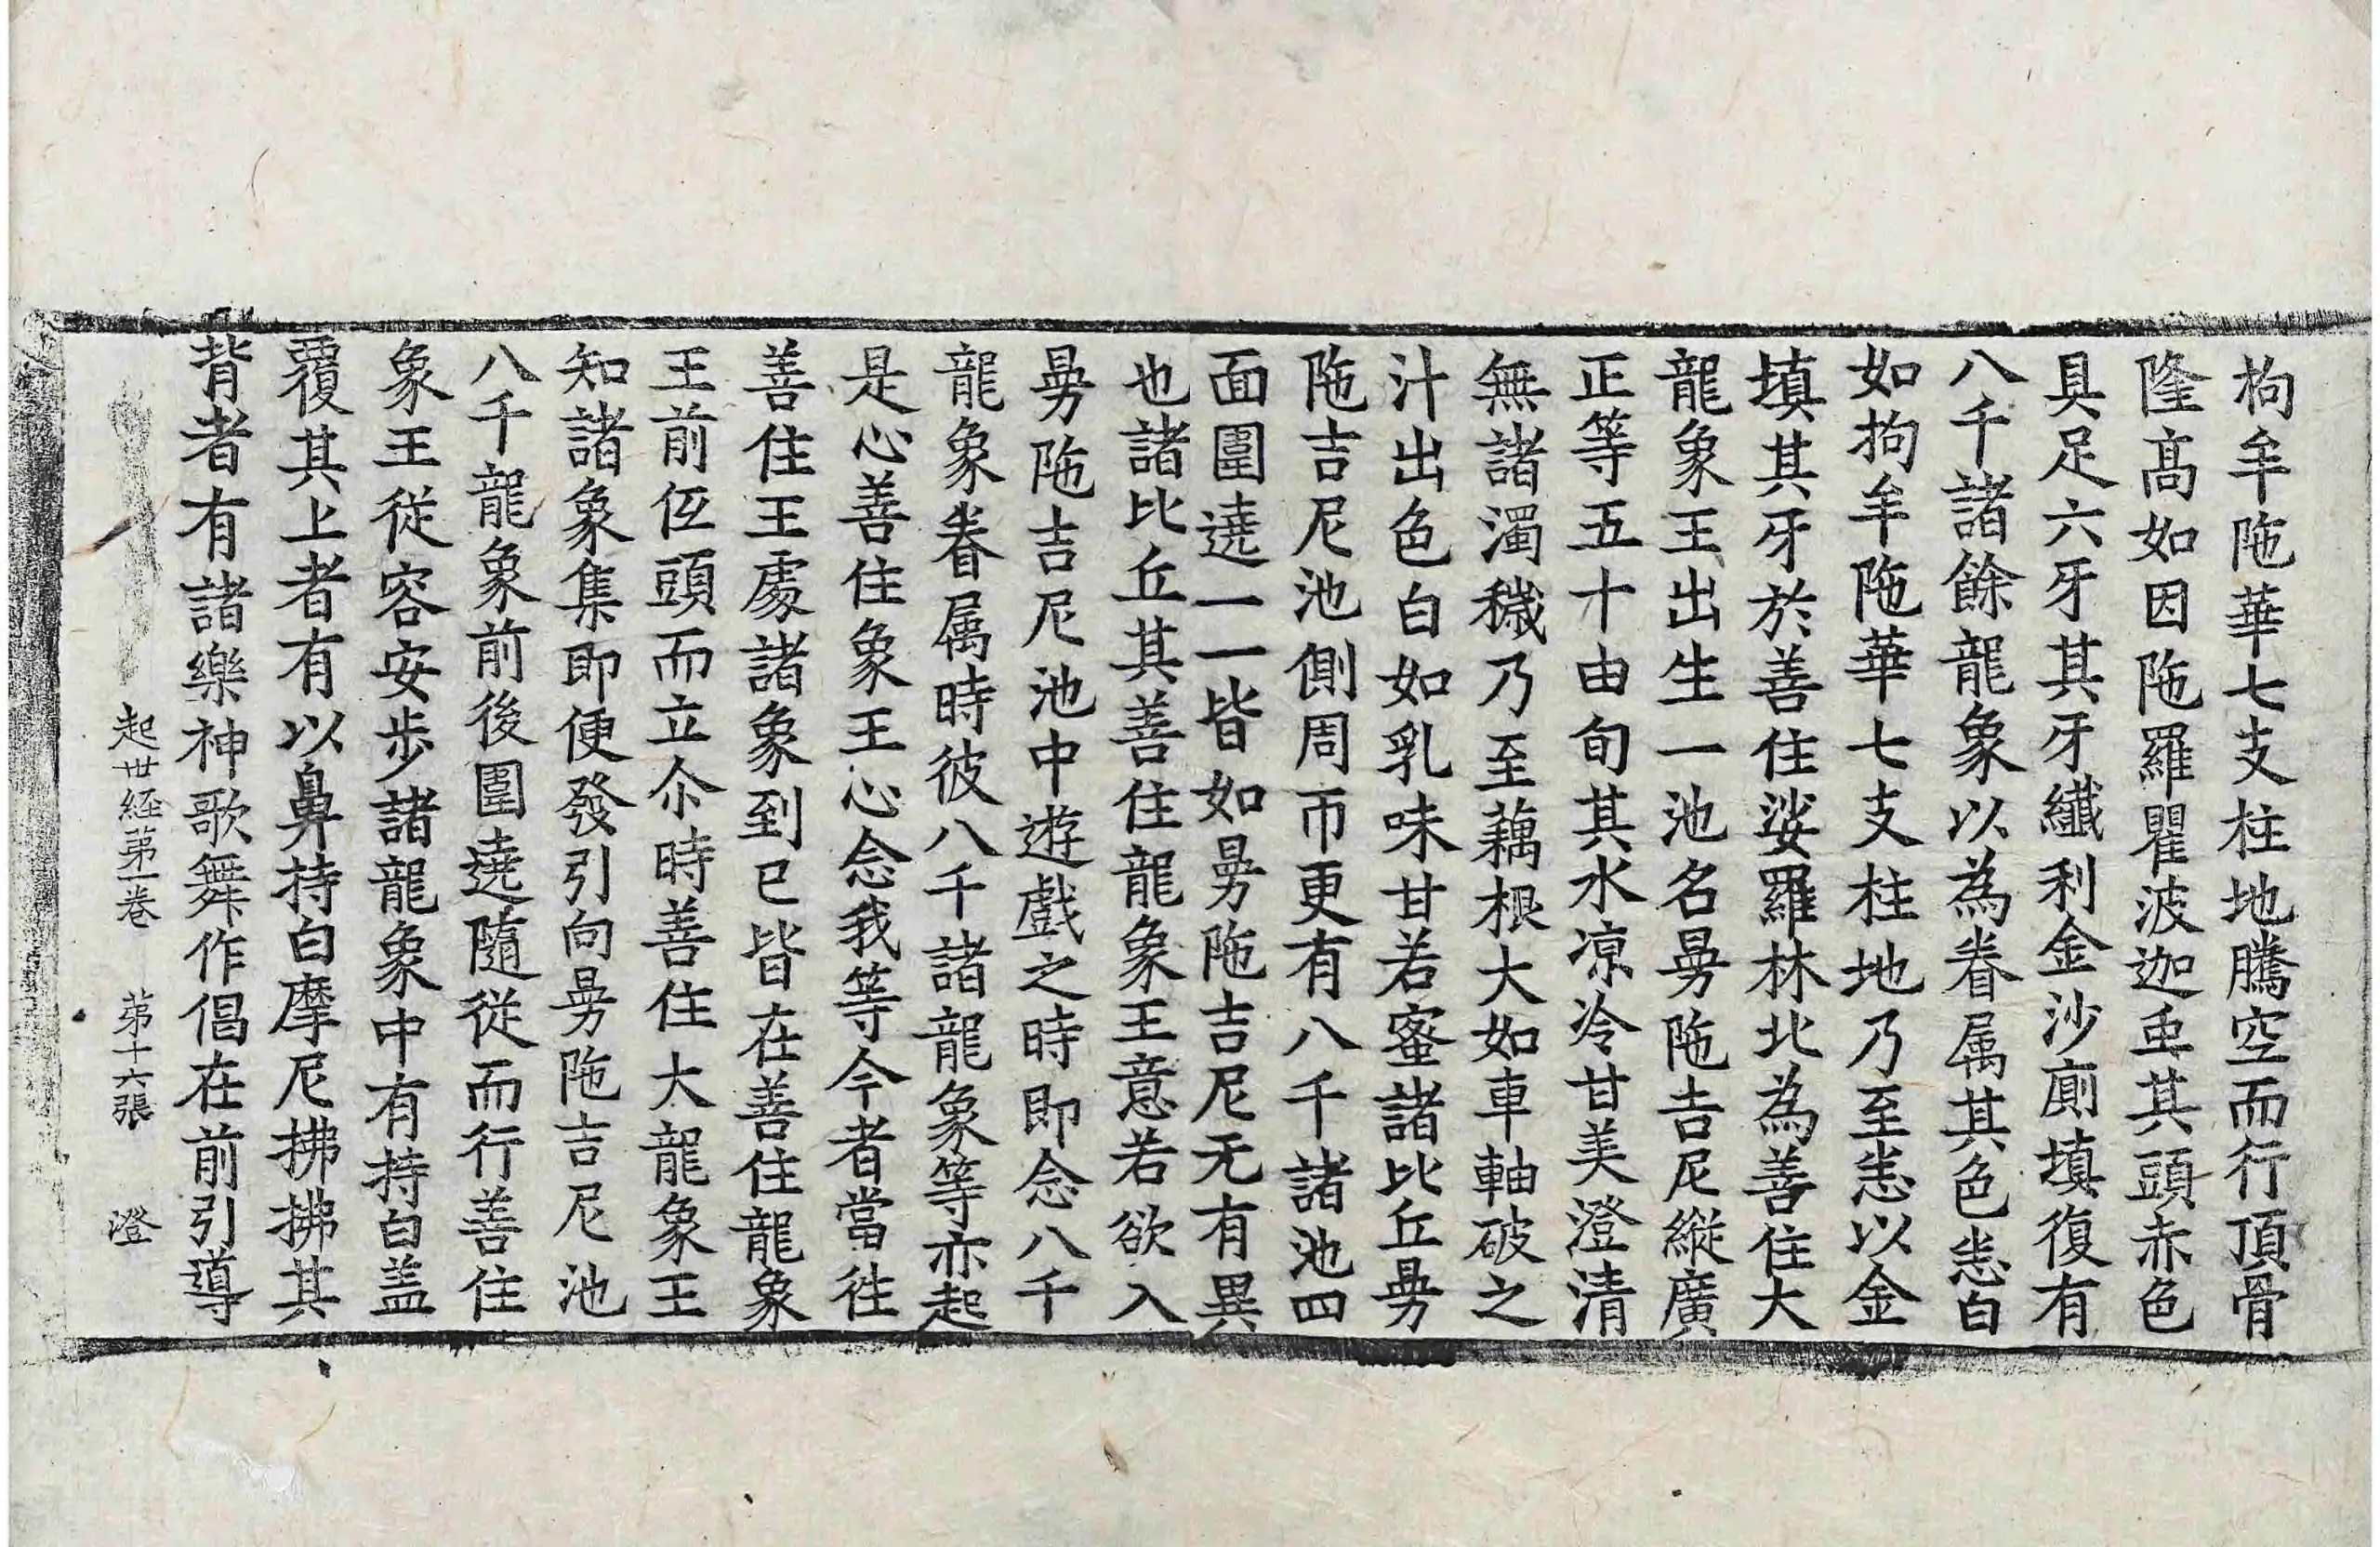 拘牟陁華七支柱地騰空而行頂骨
隆髙如因陁羅瞿波迦䖝其頭赤色
具足六牙其牙纖利金沙廁填復有
八千諸餘龍象以為眷属其色悉白
如拘牟陁華七支柱地乃至悉以金
填其牙於善住娑羅林北為善住大
龍象王出生一池名㬅陁吉尼縱廣
正等五十由旬其水凉冷甘美澄清
無諸濁穢乃至藕根大如車軸破之
汁出色白如乳味甘若蜜諸比丘㬅
陁吉尼池側周帀更有八千諸池四
面圍遶一一皆如㬅陁吉尼无有異
也諸比丘其善住龍象王意若欲入
㬅陁吉尼池中遊戲之時即念八千
龍象眷属時彼八千諸龍象等亦起
是心善住象王心念我等今者當往
善住王處諸象到已皆在善住龍象
王前伍頭而立尒時善住大龍象王
知諸象集即便發引向㬅陁吉尼池
八千龍象前後圍遶隨從而行善住
象王從容安步諸龍象中有持白盖
覆其上者有以鼻持白摩尼拂拂其
背者有諸樂神歌舞作倡在前引導
起世経第一卷 第十六張 澄